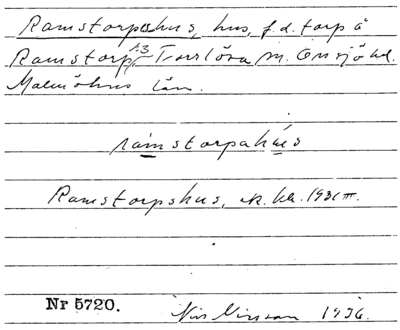 Ramstorpshus, hus, f.d. torp å
Ramstorp 13 Torrlösa sn. Onsjö hd.
Malmöhus län.
ramstorpahús
Ramstorpshus, ek. kb. 1931 III.
Nr 5720.
Nils Nilsson 1936.